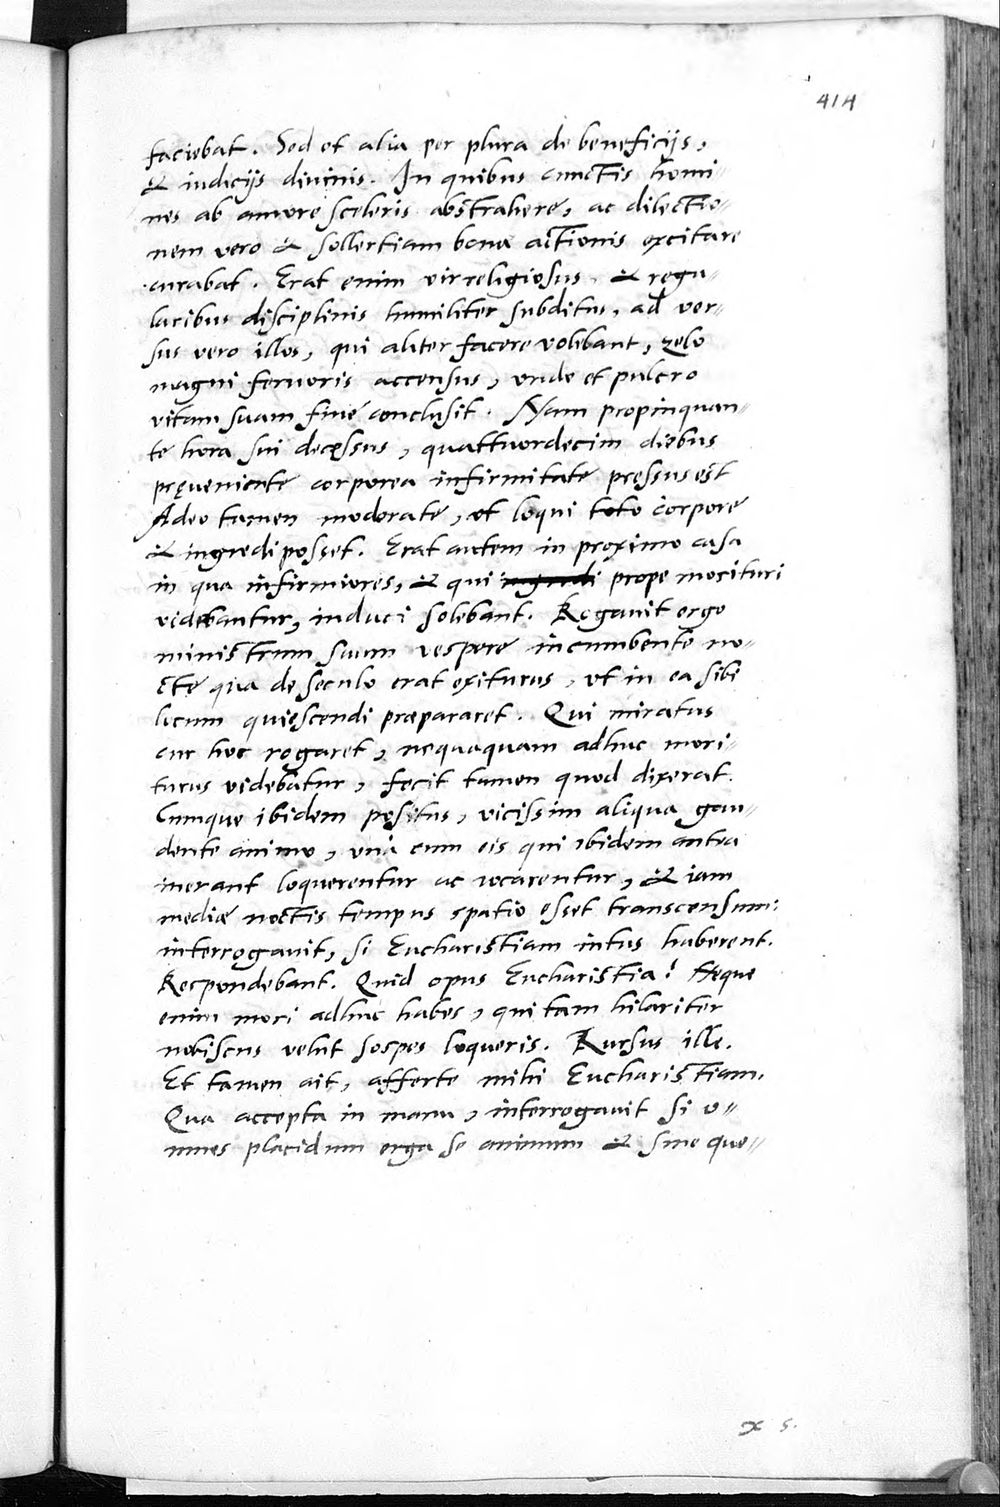 414
faciebat. Sed et alia per plura de beneficijs,
& iudicijs diuinis. In quibus cunctis homi-
nes ab amore sceleris abstrahere, ac dilectio-
nem vero & sollertiam bonæ actionis excitare
curabat. Erat enim vir religiosus, & regu-
laribus disciplinis humiliter subditus, ad ver-
sus vero illos, qui aliter facere volebant, zelo
magni feruoris accensus, vnde et pulcro
vitam suam fine conclusit. Nam propinquan-
te hora sui decessus, quattuordecim diebus
pręueniente corporea infirmitate pressus est
Adeo tamen moderate, vt loqui toto corpore
& ingredi posset. Erat autem in proximo casa
in qua infirmiores, & qui prope morituri
videbantur, induci solebant. Rogauit ergo
ministrum suum vespere incumbente no-
cte qua de seculo erat exiturus, vt in ea sibi
locum quiescendi præpararet. Qui miratus
cur hoc rogaret, nequaquam adhuc mori-
turus videbatur, fecit tamen quod dixerat.
Cumque ibidem positus, vicissim aliqua gau-
dente animo, vna cum eis qui ibidem antea
inerant loquerentur ac iocarentur, & iam
mediæ noctis tempus spatio esset transcensum:
interrogauit, si Eucharistiam intus haberent.
Respondebant. Quid opus Eucharistia? Neque
enim mori adhuc habes, qui tam hilariter
nobiscus velut sospes loqueris. Rursus ille.
Et tamen ait, afferte mihi Eucharistiam.
Qua accepta in manu, interrogauit si o-
mnes placidum erga se animum & sine que-
x 5.